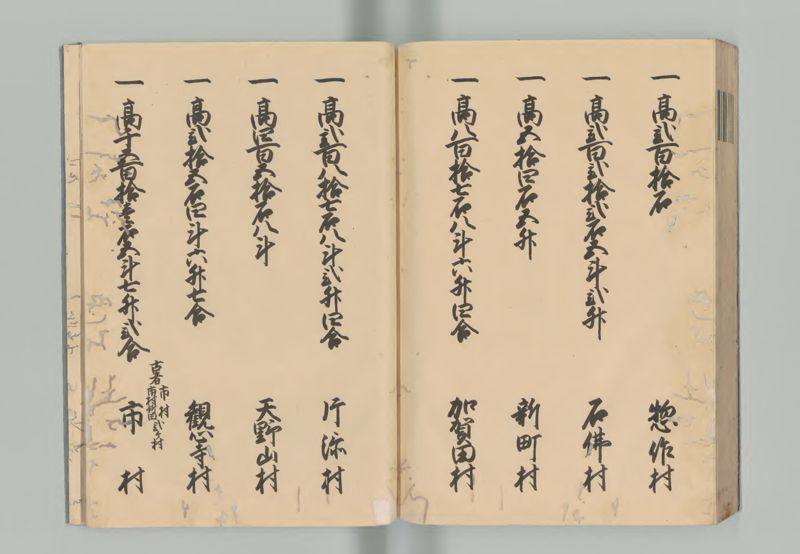 一高弐百拾石 惣作村
一高弐百弐拾弐石五斗弐升 石佛村
一高五拾四石五升 新町村
一高八百拾七石八斗六升四合 加賀田村
一高弐百八拾七石八斗弐升四合 片添村
一高四百五拾石八斗 天野山村
一高弐拾五石四斗六升七合 観心寺村
一高千五百拾壱石五斗七升弐合 市村
古者市村
市村新田弐ヶ村